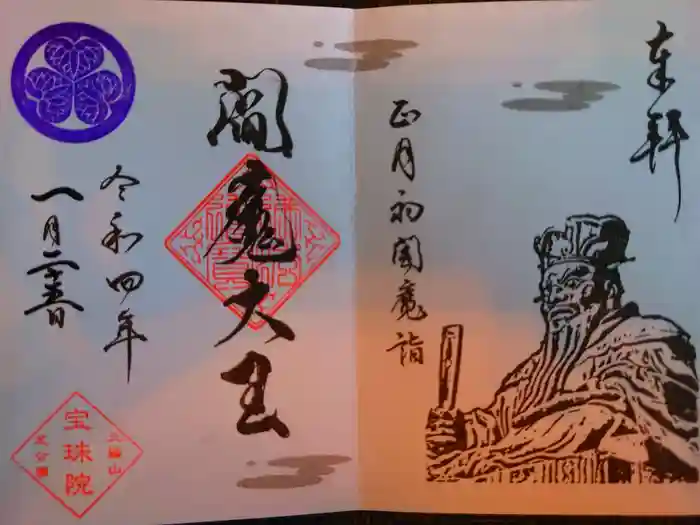 奉拝
正月初閻魔詣
閻魔大王
令和四年
一月二十五日
三縁山
宝珠院
芝公園